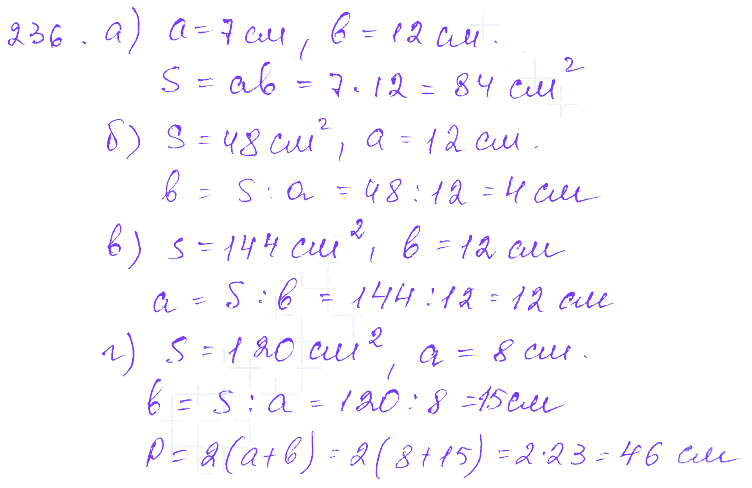 236. а) a = 7 см, b = 12 см.
S = ab = 7 · 12 = 84 см²
б) S = 48 см², a = 12 см.
b = S : a = 48 : 12 = 4 см
в) S = 144 см², b = 12 см
a = S : b = 144 : 12 = 12 см
г) S = 120 см², a = 8 см.
b = S : a = 120 : 8 = 15 см
P = 2(a+b) = 2(8+15) = 2·23 = 46 см